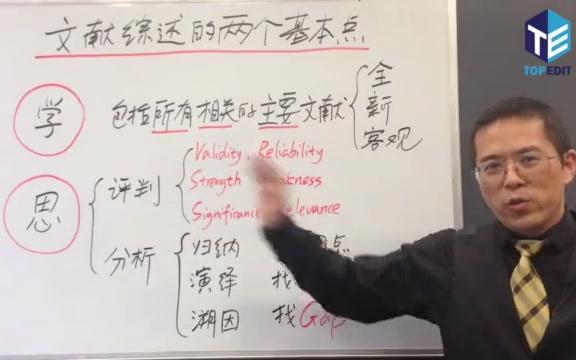 文献综述的两个基本点
TE
TOPEDIT
学 包括所有相关的主要文献
全
新
客观
思
评判
Validity, Reliability
Strength
Significance
分析
归纳 点
演绎 找
溯因 找Gap